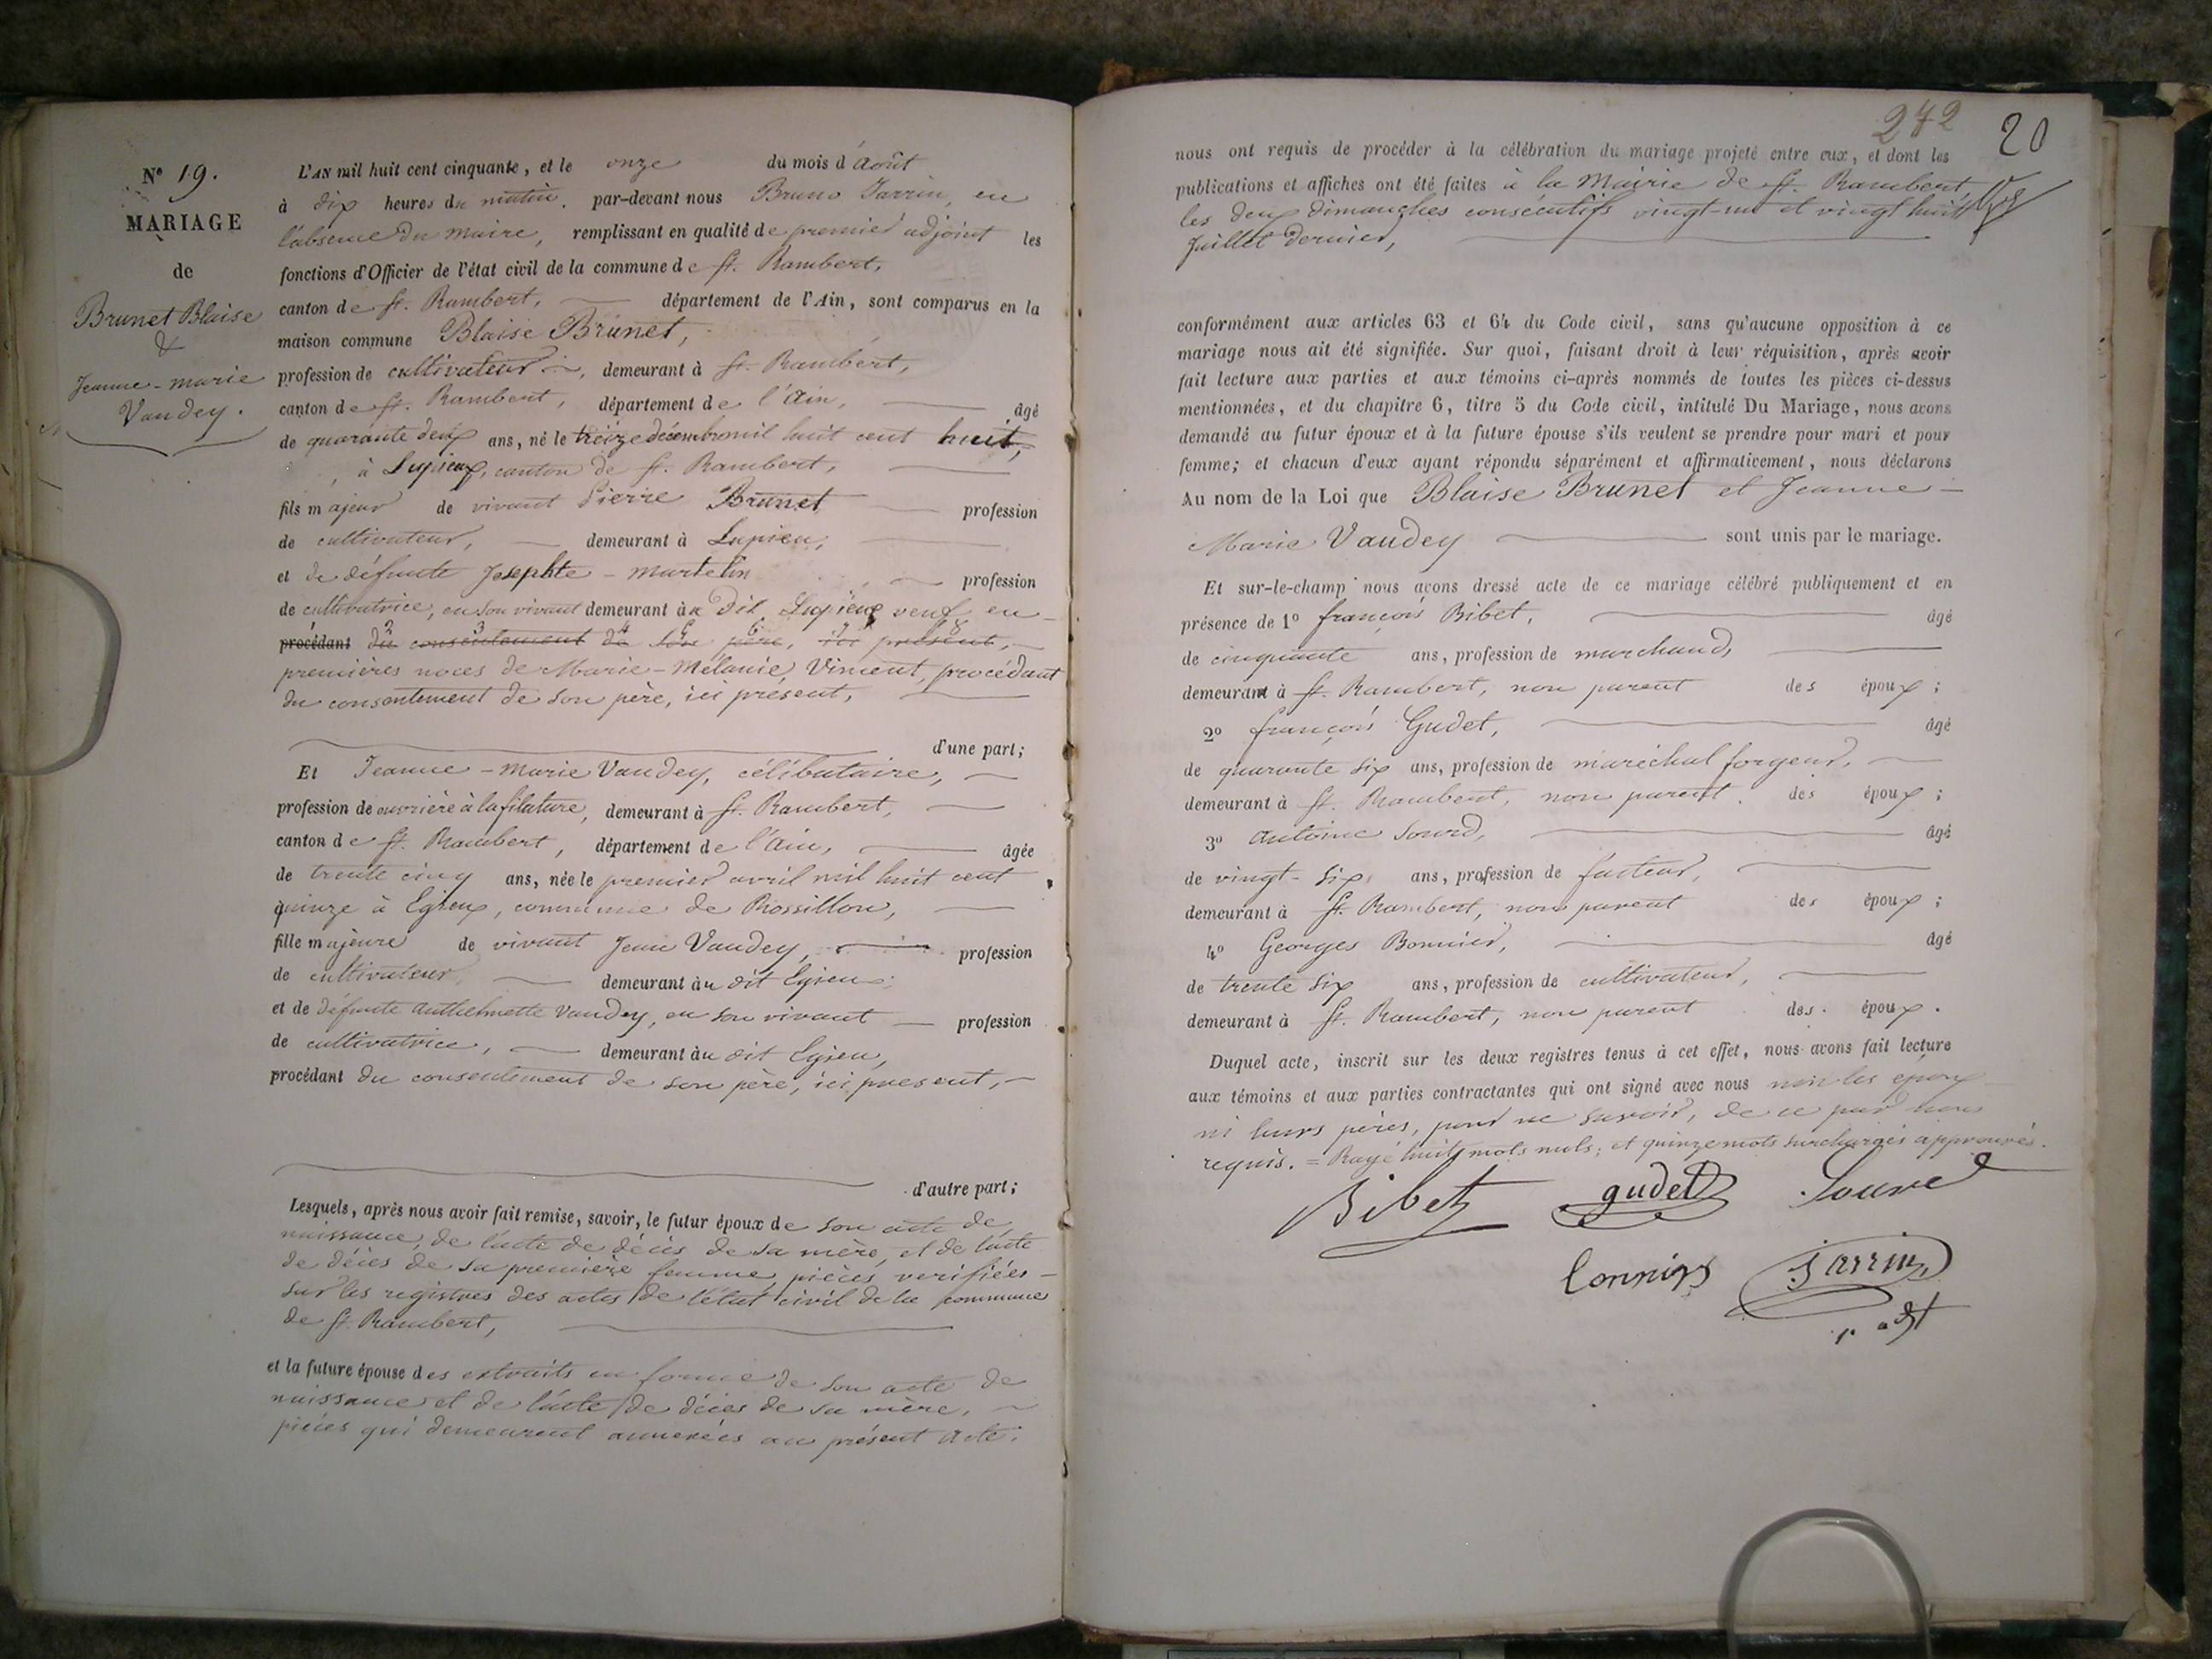 N° 19.
MARIAGE
de
Brunet Blaise
&
Jeanne-marie
Vaudey.
L'AN mil huit cent cinquante, et le onze du mois d'Août
à dix heures du matin. par-devant nous Bruno Jarrin, en
l'absence du maire, remplissant en qualité de premier adjoint les
fonctions d'Officier de l'état civil de la commune de St. Rambert,
canton de St. Rambert, département de l'Ain, sont comparus en la
maison commune Blaise Brunet,
profession de cultivateur, demeurant à St. Rambert,
canton de St. Rambert, département de l'Ain, âgé
de quarante deux ans, né le treize décembre mil huit cent huit,
à Lupieux, canton de St. Rambert,
fils majeur de vivant Pierre Brunet profession
de cultivateur, demeurant à Lupieu,
et de défunte Josephte - martelin profession
de cultivatrice, en son vivant demeurant au dit Lupieux veuf en
procédant du consentement de son père, ici présent,
premières noces de Marie-Mélanie Vincent, procédant
du consentement de son père, ici présent,
d'une part;
Et Jeanne-Marie Vaudey, célibataire,
profession de ouvrière à la filature, demeurant à St. Rambert,
canton de St. Rambert, département de l'Ain, âgée
de trente cinq ans, née le premier avril mil huit cent
quinze à Egieux, commune de Rossillon,
fille majeure de vivant Jean Vaudey, profession
de cultivateur, demeurant au dit Egieu;
et de défunte Anthelmette Vaudey, en son vivant profession
de cultivatrice, demeurant au dit Egieu,
procédant du consentement de son père, ici présent,
d'autre part;
Lesquels, après nous avoir fait remise, savoir, le futur époux de son acte de
naissance, de l'acte de décès de sa mère, et de l'acte
de décès de sa première femme, pièces verifiées
sur les registres des actes de l'état civil de la commune
de St. Rambert,
et la future épouse des extraits en forme de son acte de
naissance et de l'acte de décès de sa mère,
pièces qui demeurent annexées au présent acte.
242
20
nous ont requis de procéder à la célébration du mariage projeté entre eux, et dont les
publications et affiches ont été faites à la Mairie de St. Rambert,
les deux dimanches consécutifs vingt-un et vingt huit
Juillet dernier,
conformément aux articles 63 et 64 du Code civil, sans qu'aucune opposition à ce
mariage nous ait été signifiée. Sur quoi, faisant droit à leur réquisition, après avoir
fait lecture aux parties et aux témoins ci-après nommés de toutes les pièces ci-dessus
mentionnées, et du chapitre 6, titre 5 du Code civil, intitulé Du Mariage, nous avons
demandé au futur époux et à la future épouse s'ils veulent se prendre pour mari et pour
femme; et chacun d'eux ayant répondu séparément et affirmativement, nous déclarons
Au nom de la Loi que Blaise Brunet et Jeanne-
Marie Vaudey sont unis par le mariage.
Et sur-le-champ nous avons dressé acte de ce mariage célébré publiquement et en
présence de 1° françois Bibet, âgé
de cinquante ans, profession de marchand,
demeurant à St. Rambert, non parent des époux;
2° françois Gudet, âgé
de quarante six ans, profession de maréchal forgeur,
demeurant à St. Rambert, non parent des époux;
3° Antoine Sourd, âgé
de vingt-six ans, profession de facteur,
demeurant à St. Rambert, non parent des époux;
4° Georges Bonnier, âgé
de trente six ans, profession de cultivateur,
demeurant à St. Rambert, non parent des époux.
Duquel acte, inscrit sur les deux registres tenus à cet effet, nous avons fait lecture
aux témoins et aux parties contractantes qui ont signé avec nous non les époux
ni leurs pères, pour ne savoir, de ce par nous
requis. = Rayé huit mots nuls; et quinze mots surchargés approuvés.
Bibet gudet
Jarrin